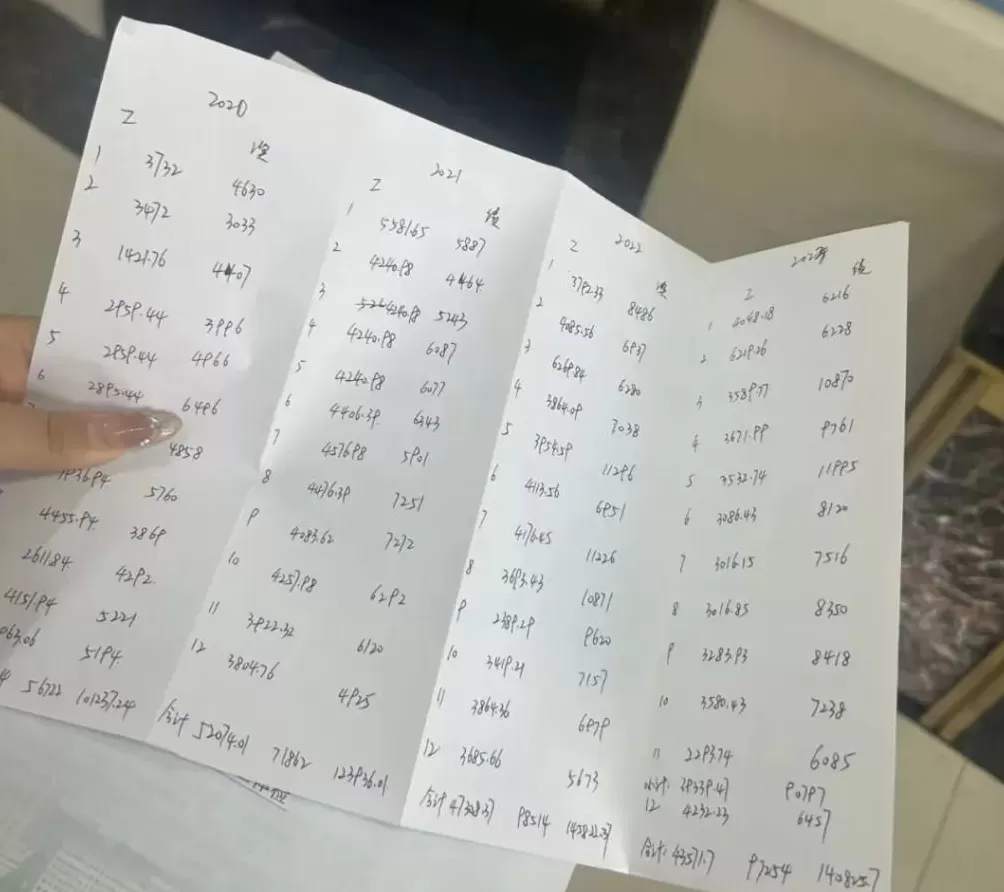 2020
Z 绩
1 3732 4630
2 3472 3033
3 1421.76 4407
4 2959.44 3996
5 2859.44 4966
6 2895.44 6496
4858
1936.94 5760
4455.94 3869
2611.84 4292
4151.94 5221
063.06 5194
56722 101237.24
2021
Z 绩
1 5581.65 5887
2 4240.98 4464
3 4240.98 5243
4 4240.98 6087
5 4240.98 6077
6 4406.39 6343
7 4576.98 5901
8 4476.39 7251
9 4083.62 7272
10 4257.98 6292
11 3922.32 6120
12 3804.76 4925
合计 52074.01 71862 123936.01
2022
Z 绩
1 3792.33 8486
2 4085.56 6937
3 6269.84 6280
4 3864.09 7038
5 3954.59 11296
6 4113.56 6951
7 4176.45 11226
8 3693.43 10871
9 2389.29 9620
10 3419.21 7157
11 3864.36 6979
12 3685.66 5673
合计 47328.37 98514 145822.37
Z 绩
1 4048.18 6216
2 6219.26 6228
3 3589.77 10870
4 3671.99 9761
5 3532.74 11995
6 3086.43 8120
7 3016.15 7516
8 3016.85 8350
9 3283.93 8418
10 3580.43 7238
11 2293.74 6085
小计: 39339.47 90797
12 4232.23 6457
合计: 43571.7 97254 140825.7